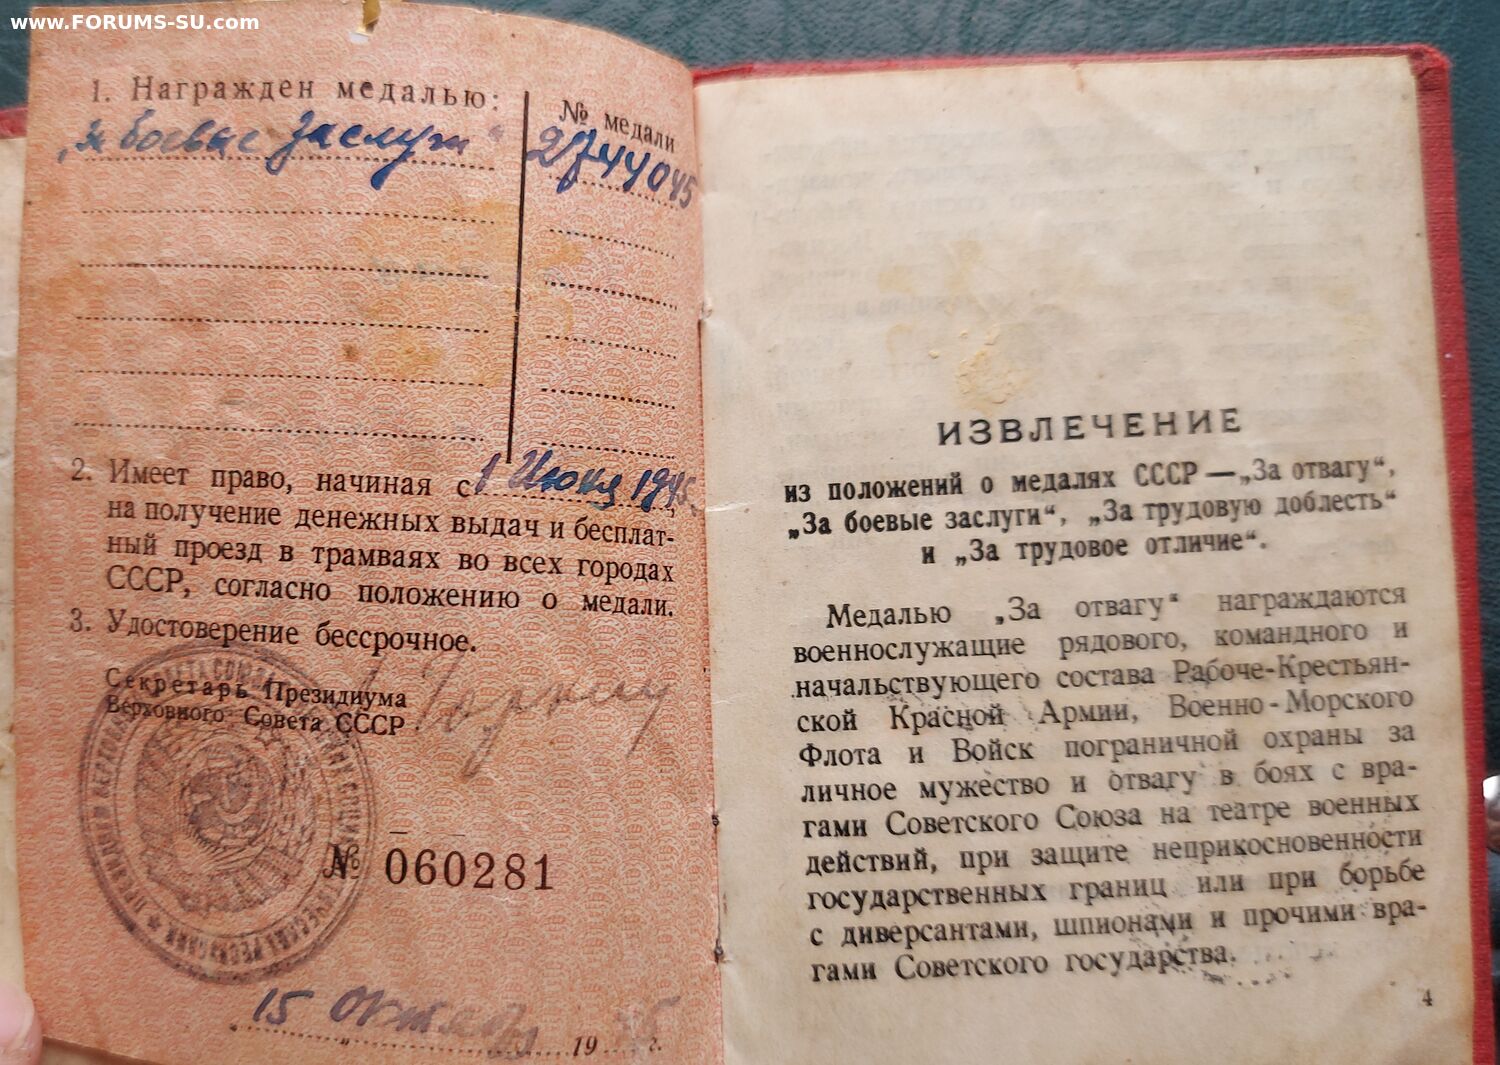 www.FORUMS-SU.com
1. Награжден медалью:
№ медали
„За боевые заслуги“
2744045
2. Имеет право, начиная с 1 Июня 1945
на получение денежных выдач и бесплат-
ный проезд в трамваях во всех городах
СССР, согласно положению о медали.
3. Удостоверение бессрочное.
Секретарь Президиума
Верховного Совета СССР
№ 060281
15 Октября 19 г.
ИЗВЛЕЧЕНИЕ
из положений о медалях СССР — „За отвагу“,
„За боевые заслуги“, „За трудовую доблесть“
и „За трудовое отличие“.
Медалью „За отвагу“ награждаются
военнослужащие рядового, командного и
начальствующего состава Рабоче-Крестьян-
ской Красной Армии, Военно-Морского
Флота и Войск пограничной охраны за
личное мужество и отвагу в боях с вра-
гами Советского Союза на театре военных
действий, при защите неприкосновенности
государственных границ или при борьбе
с диверсантами, шпионами и прочими вра-
гами Советского государства.
4